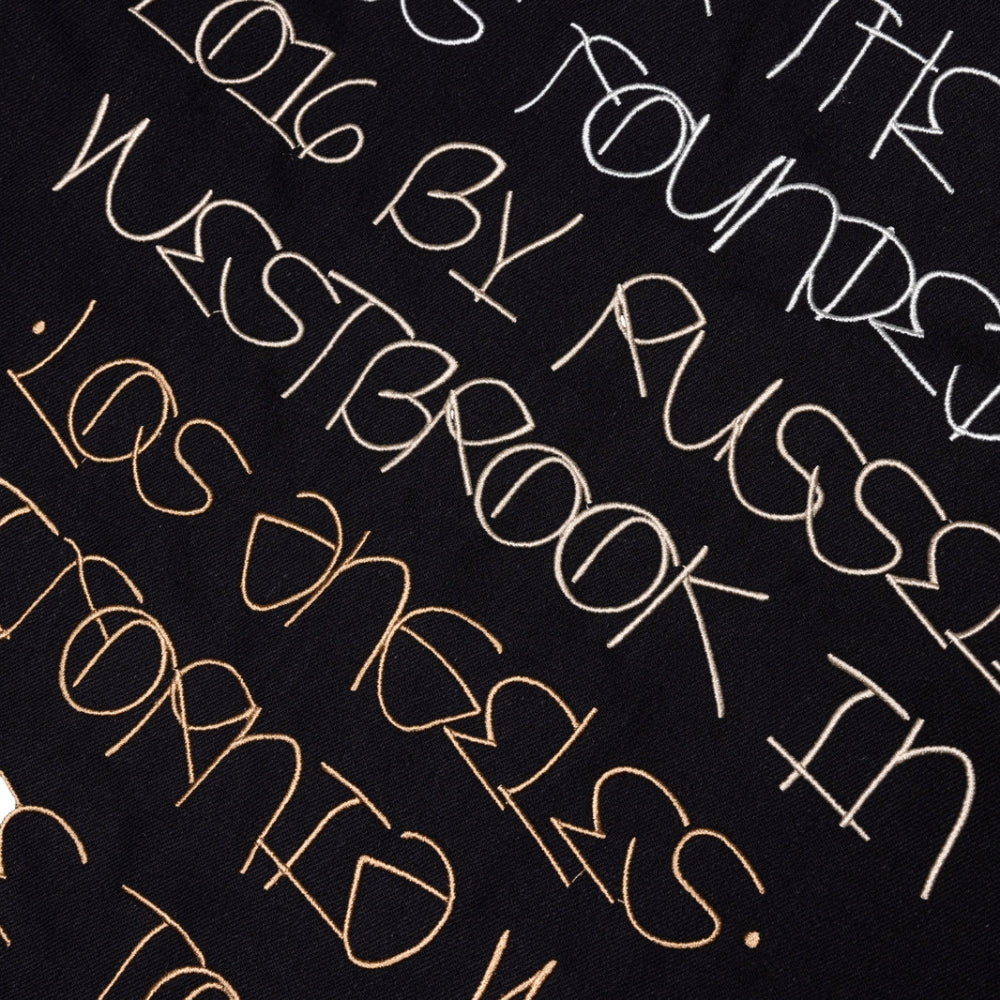 THE
FOUNDED
2016 BY RUSSEL
WESTBROOK IN
.LOS ANGELES.
IFORNIA
TO